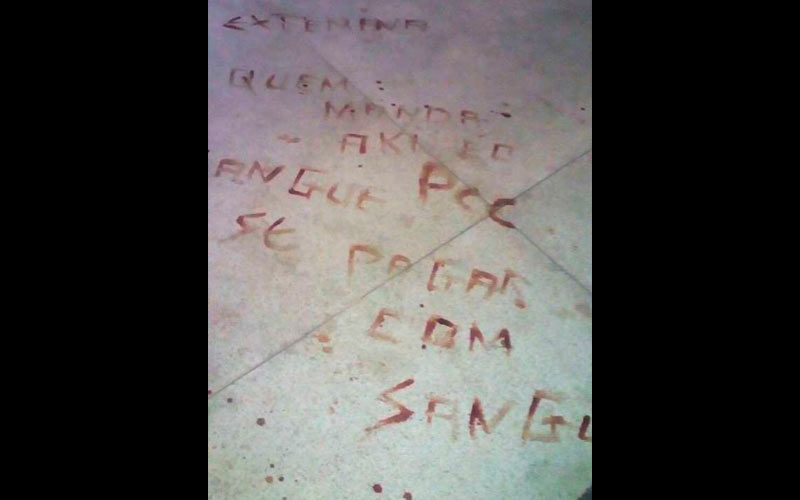 EXTEMINA
QUEM
MANDA
AKI EO
ANGUE PCC
SE PAGAR
COM
SANGU